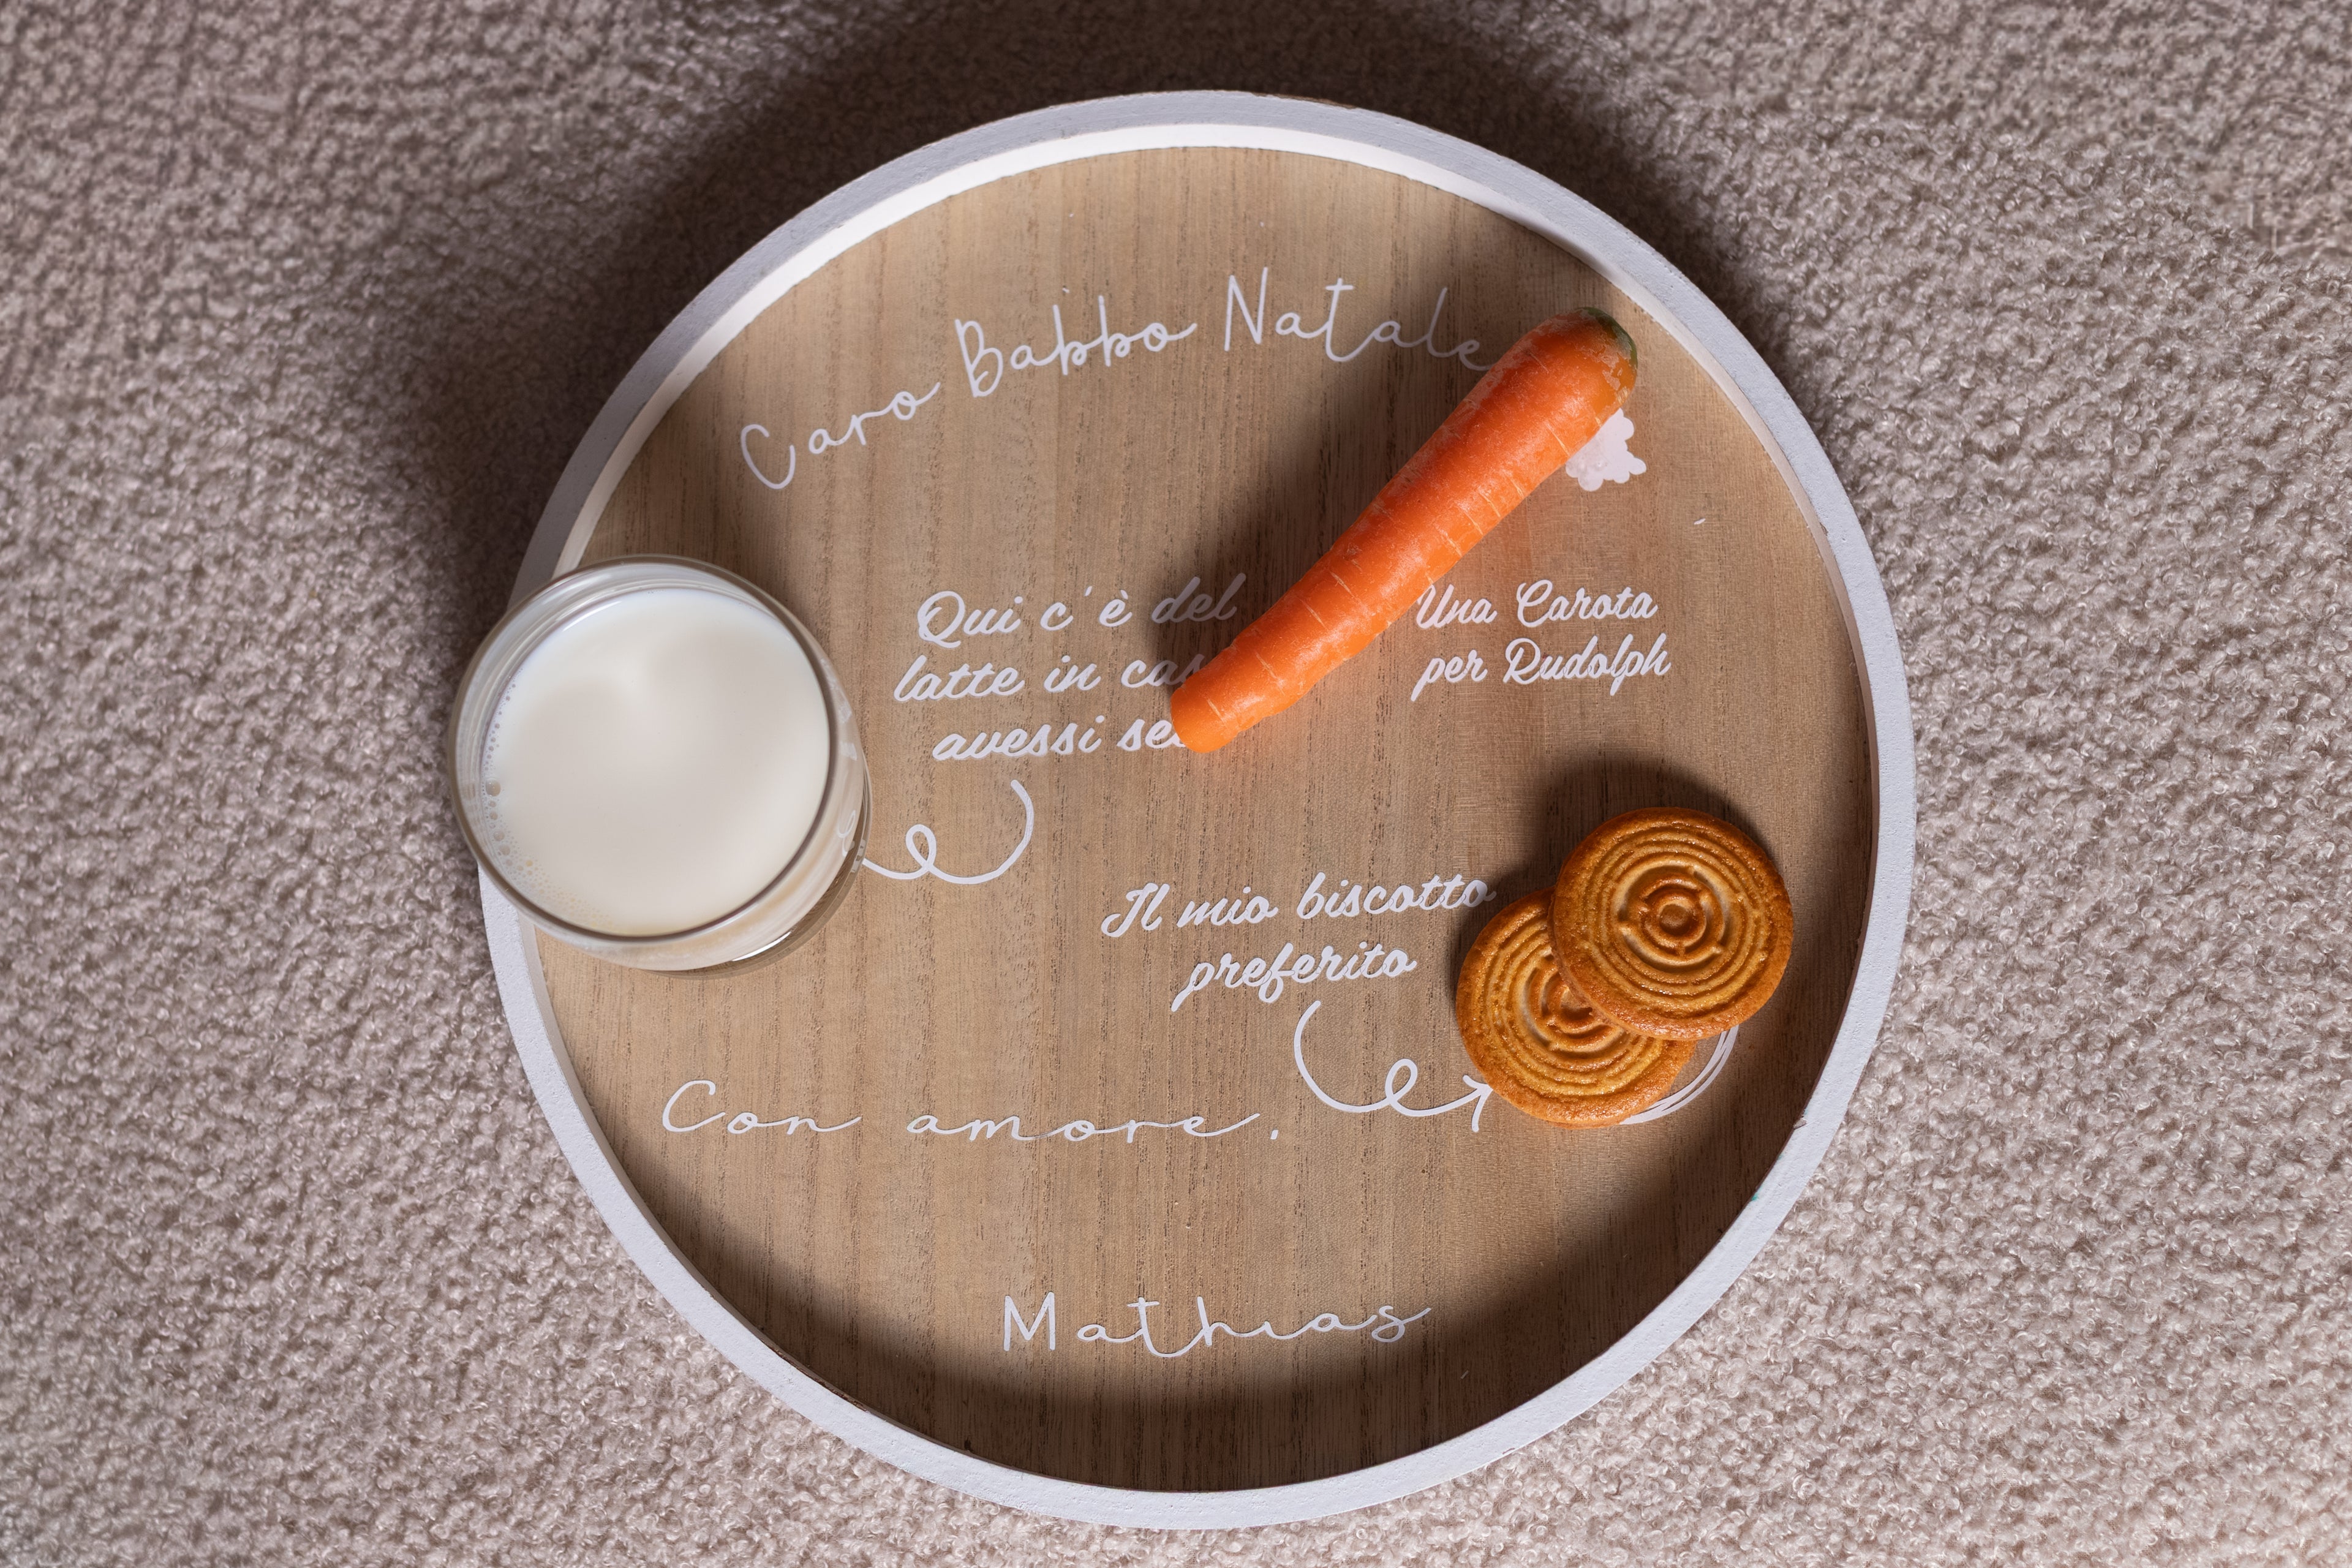 Caro Babbo Natale
Qui c'è del
latte in
avessi
Una Carota
per Rudolph
Il mio biscotto
preferito
Con amore,
Mathias